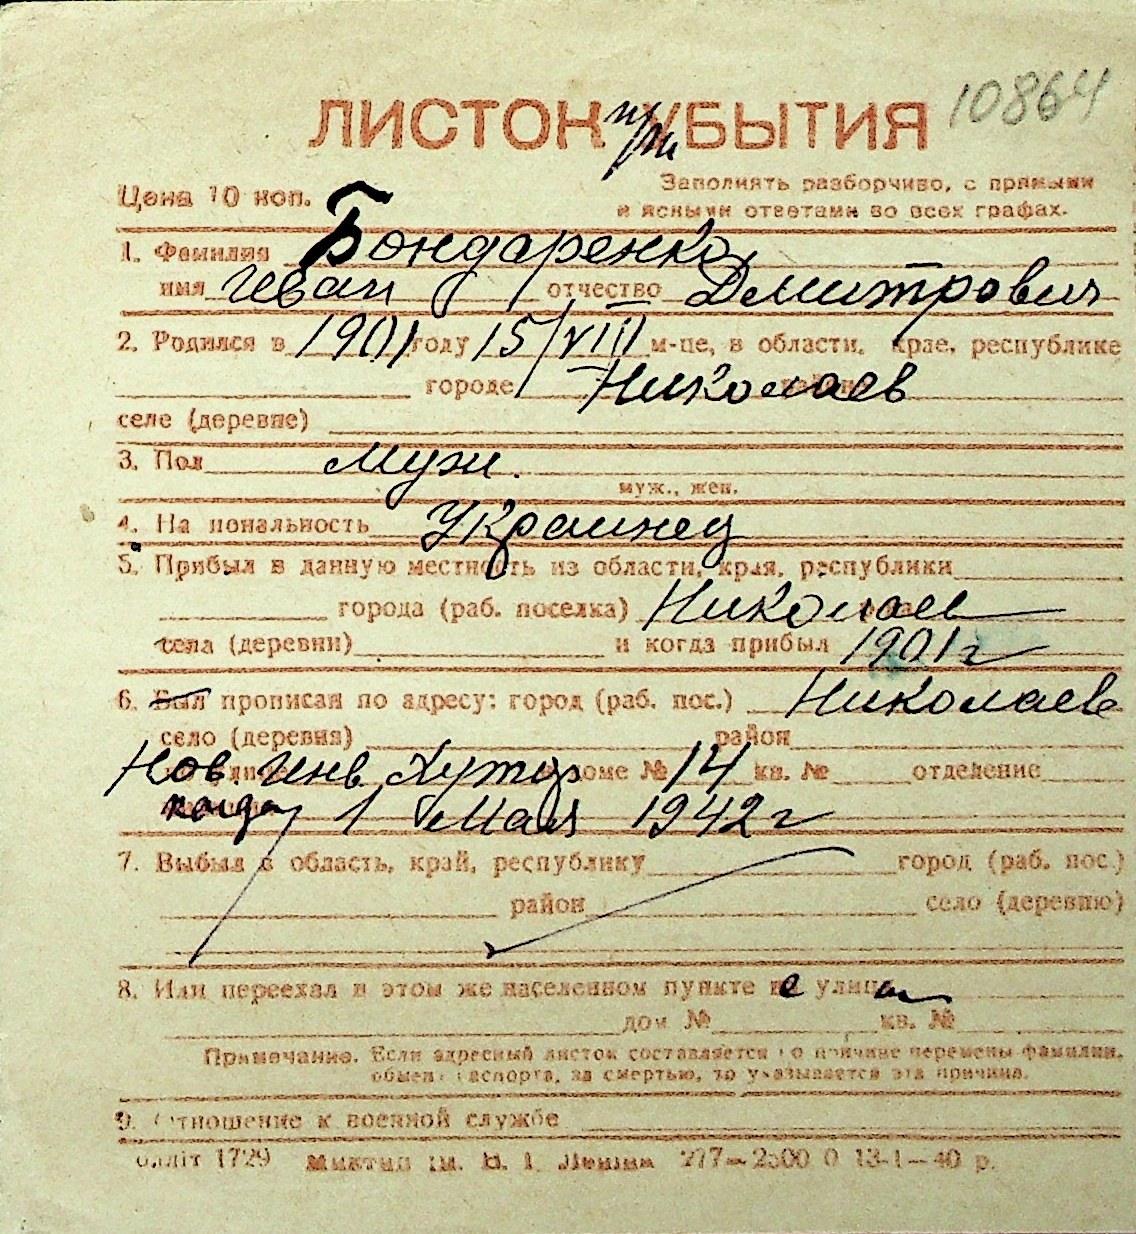 10864
ЛИСТОК УБЫТИЯ
Цена 10 коп. Заполнять разборчиво, с прямыми
и ясными ответами во всех графах.
1. Фамилия Бондаренко
имя Иван отчество Дмитрович
2. Родился в 1901 году 15/VIII м-це, в области, крае, республике
городе Николаев
селе (деревне)
3. Пол муж.
муж., жен.
4. Национальность Украинец
5. Прибыл в данную местность из области, края, республики
города (раб. поселка) Николаев
села (деревни) и когда прибыл 1901 г
6. Был прописан по адресу: город (раб. пос.) Николаев
село (деревня) район
Нов. Инв Хутор доме № 14 кв. № отделение
когда 1 Мая 1942 г
7. Выбыл в область, край, республику город (раб. пос.)
район село (деревню)
8. Или переехал в этом же населенном пункте с улицы
дом № кв. №
Примечание. Если адресный листок составляется по причине перемены фамилии,
обмена паспорта, за смертью, то указывается эта причина.
9. Отношение к военной службе
1729 Миктип ім. В. І. Леніна 277—2500 0 13-1—40 р.